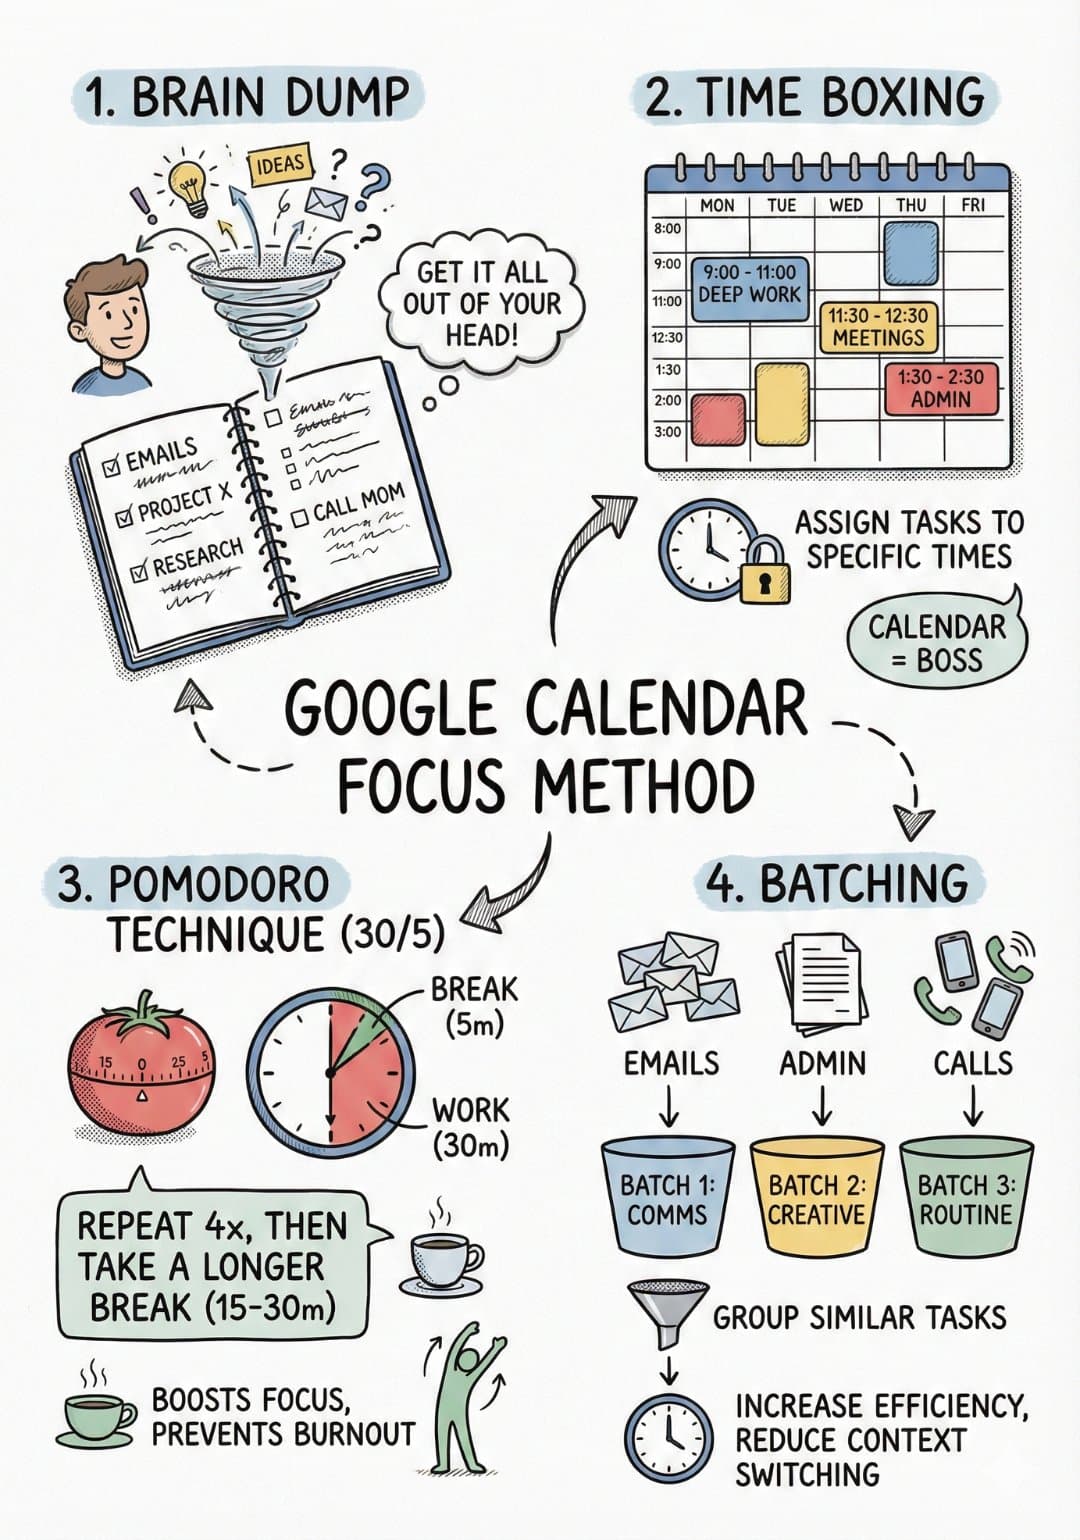 1. BRAIN DUMP
IDEAS
GET IT ALL
OUT OF YOUR
HEAD!
EMAILS
PROJECT X
RESEARCH
CALL MOM
2. TIME BOXING
MON TUE WED THU FRI
8:00
9:00
11:00
12:30
1:30
2:00
3:00
9:00 - 11:00
DEEP WORK
11:30 - 12:30
MEETINGS
1:30 - 2:30
ADMIN
ASSIGN TASKS TO
SPECIFIC TIMES
CALENDAR
= BOSS
GOOGLE CALENDAR
FOCUS METHOD
3. POMODORO
TECHNIQUE (30/5)
15 0 25 5
BREAK
(5m)
WORK
(30m)
REPEAT 4x, THEN
TAKE A LONGER
BREAK (15-30m)
BOOSTS FOCUS,
PREVENTS BURNOUT
4. BATCHING
EMAILS ADMIN CALLS
BATCH 1:
COMMS
BATCH 2:
CREATIVE
BATCH 3:
ROUTINE
GROUP SIMILAR TASKS
INCREASE EFFICIENCY,
REDUCE CONTEXT
SWITCHING